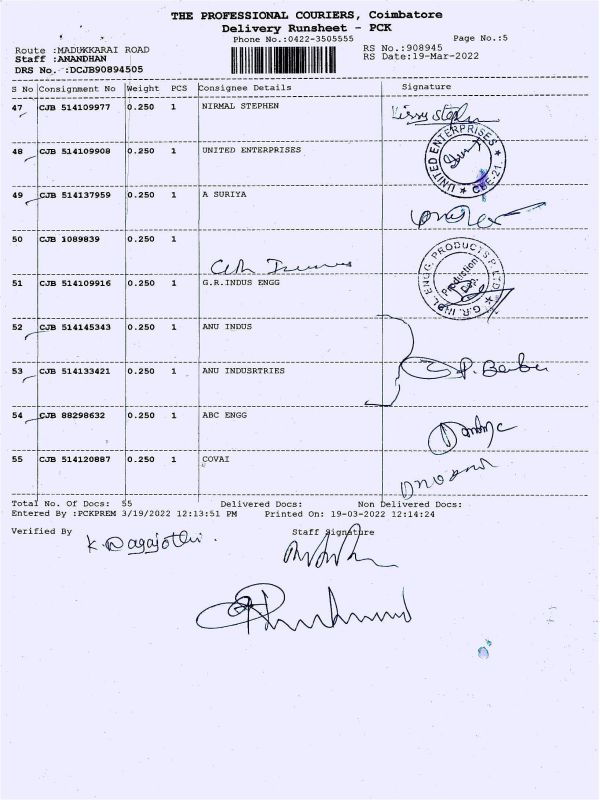 THE PROFESSIONAL COURIERS, Coimbatore
Delivery Runsheet - PCK
Phone No.:0422-3505555 Page No.:5
Route :MADUKKARAI ROAD RS No.:908945
Staff :ANANDHAN RS Date:19-Mar-2022
DRS No. :DCJB90894505
S No Consignment No Weight PCS Consignee Details Signature
47 CJB 514109977 0.250 1 NIRMAL STEPHEN
48 CJB 514109908 0.250 1 UNITED ENTERPRISES
UNITED ENTERPRISES ★ CBE-21. ★
49 CJB 514137959 0.250 1 A SURIYA
50 CJB 1089839 0.250 1
51 CJB 514109916 0.250 1 G.R.INDUS ENGG
G.R. INDL ENGG. PRODUCTS P. LTD ★
Production
52 CJB 514145343 0.250 1 ANU INDUS
53 CJB 514133421 0.250 1 ANU INDUSRTRIES
54 CJB 88298632 0.250 1 ABC ENGG
55 CJB 514120887 0.250 1 COVAI
Total No. Of Docs: 55 Delivered Docs: Non Delivered Docs:
Entered By :PCKPREM 3/19/2022 12:13:51 PM Printed On: 19-03-2022 12:14:24
Verified By Staff Signature